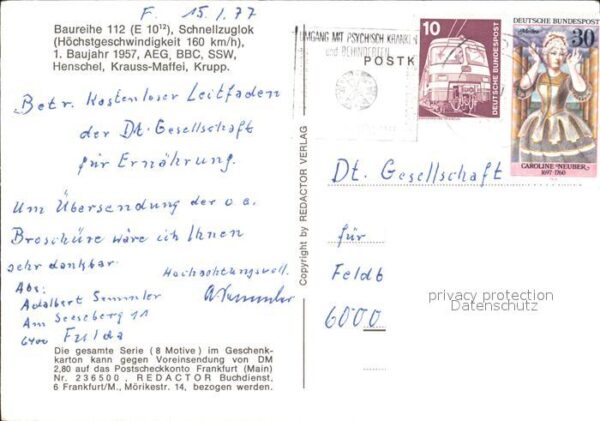 F. 15.1.77
Baureihe 112 (E 10¹²), Schnellzuglok
(Höchstgeschwindigkeit 160 km/h),
1. Baujahr 1957, AEG, BBC, SSW,
Henschel, Krauss-Maffei, Krupp.
Betr. Kostenloser Leitfaden
der Dt. Gesellschaft
für Ernährung.
Um Übersendung der o.a.
Broschüre wäre ich Ihnen
sehr dankbar.
Hochachtungsvoll.
Abs:
Adalbert Semmler
A Semmler
Am Seeseberg 11
6400 Fulda
Die gesamte Serie (8 Motive) im Geschenk-
karton kann gegen Voreinsendung von DM
2,80 auf das Postscheckkonto Frankfurt (Main)
Nr. 236500, REDACTOR Buchdienst,
6 Frankfurt/M., Mörikestr. 14, bezogen werden.
Copyright by REDACTOR VERLAG
UMGANG MIT PSYCHISCH KRANKEN
und BEHINDERTEN
POSTK
10
DEUTSCHE BUNDESPOST
DEUTSCHE BUNDESPOST
30
CAROLINE NEUBER
1697-1760
Dt. Gesellschaft
für
Feldb
6000
privacy protection
Datenschutz